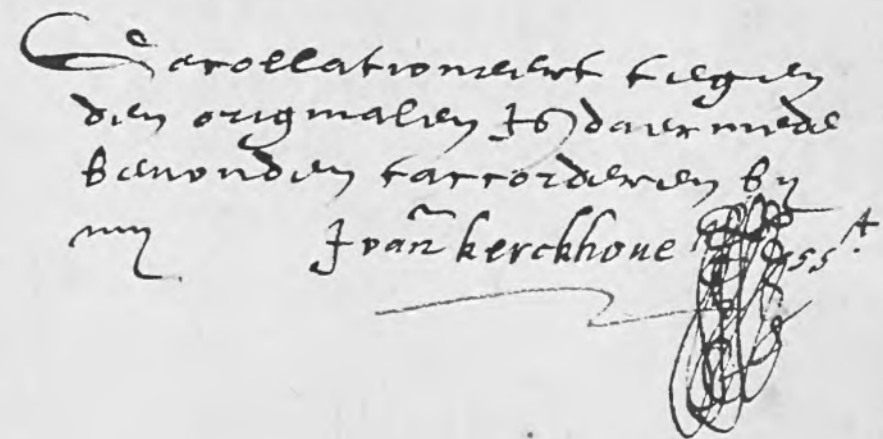 Gecollationeert tiegen
den originalen Is daermede
bevonden taccorderen by
my J van kerckhove sst